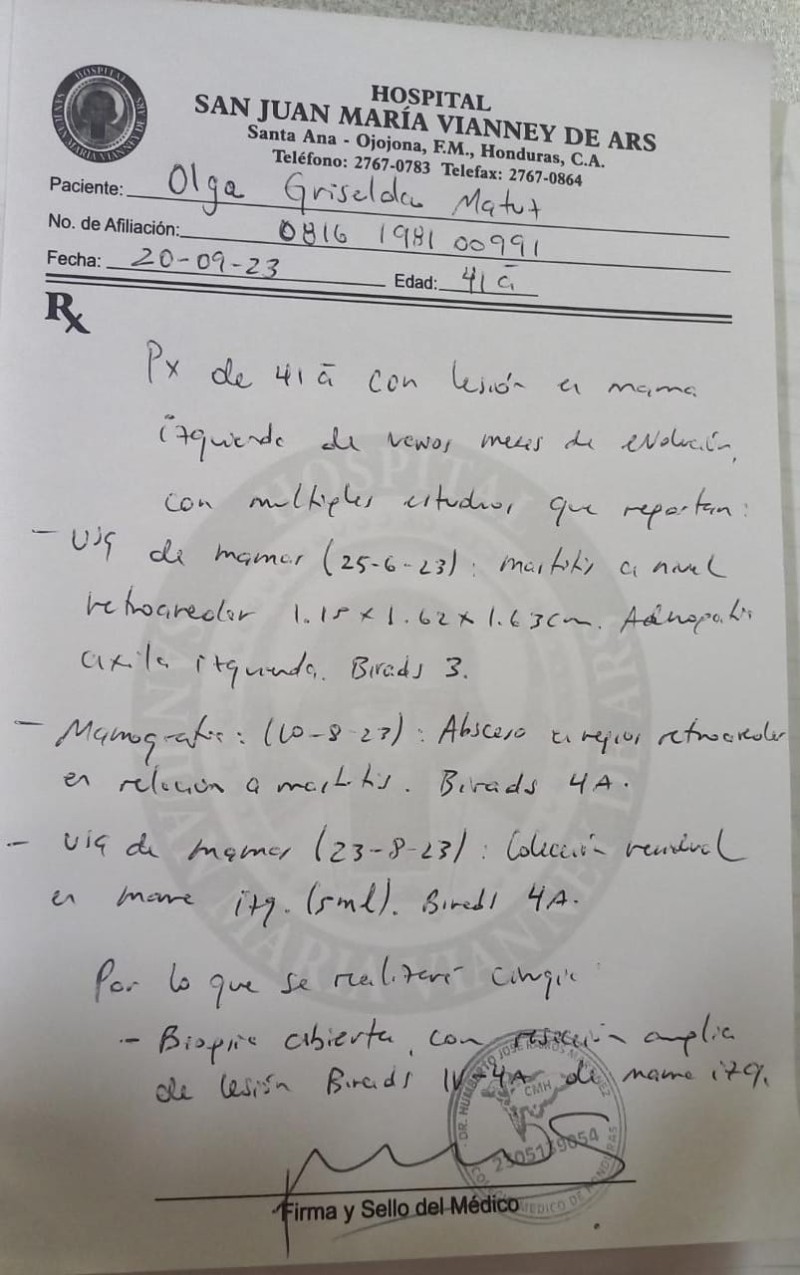 HOSPITAL
SAN JUAN MARÍA VIANNEY DE ARS
HOSPITAL
SAN JUAN MARÍA VIANNEY DE ARS
Santa Ana - Ojojona, F.M., Honduras, C.A.
Teléfono: 2767-0783 Telefax: 2767-0864
Paciente: Olga Griselda Matut
No. de Afiliación: 0816 1981 00991
Fecha: 20-09-23 Edad: 41 a
Rx
Px de 41 a con lesión en mama
izquierda de varios meses de evolución,
con multiples estudios que reportan:
- USG de mamas (25-6-23): mastitis a nivel
retroareolar 1.15 x 1.62 x 1.63cm. Adenopatia
axila izquierda. Birads 3.
- Mamografia: (10-8-23): Absceso en region retroareolar
en relación a mastitis. Birads 4A.
- USG de mamas (23-8-23): Colección residual
en mama izq. (5ml). Birads 4A.
Por lo que se realizará cirugia
- Biopsia abierta, con resección amplia
de lesión Birads IV-4A de mama izq.
DR. HUMBERTO JOSE
CMH
COLEGIO MEDICO DE HONDURAS
Firma y Sello del Médico
HOSPITAL
SAN JUAN MARIA VIANNEY DE ARS